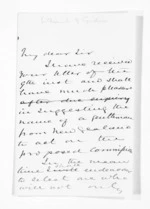 My dear Sir
I have received
your letter of the
9th inst and shall
have much pleasure
after due inquiry
in suggesting the
name of a gentleman
from New Zealand
to act on the
proposed Committee
In the mean
time I will endeavour
to select one who
will not only